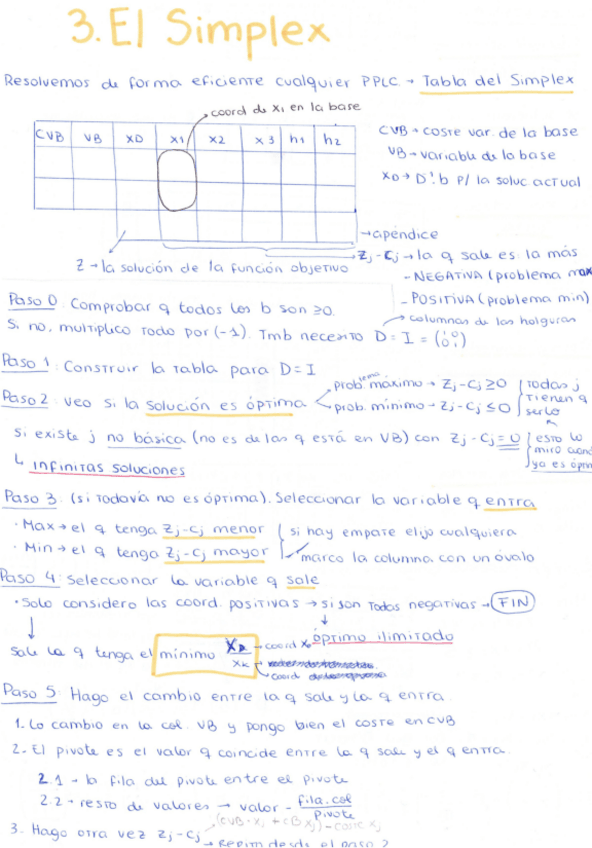 3. El Simplex
Resolvemos de forma eficiente cualquier PPLC → Tabla del Simplex
coord de x1 en la base
CVB VB XD x1 x2 x3 h1 h2
CVB → coste var. de la base
VB → variable de la base
XD → D⁻¹b p/ la soluc actual
→ apéndice
Zj - Cj → la q sale es la más
- NEGATIVA (problema max
- POSITIVA (problema min)
Z → la solución de la función objetivo
columnas de las holguras
Paso 0: Comprobar q todos los b son ≥0.
Si no, multiplico todo por (-1). Tmb necesito D = I = (1 0 0 1)
Paso 1: Construir la tabla para D = I
Paso 2: Veo si la solución es óptima
prob. máximo → Zj - Cj ≥ 0
prob. mínimo → Zj - Cj ≤ 0
Todas j
tienen q
serlo
Si existe j no básica (no es de las q está en VB) con Zj - Cj = 0
esto lo
miro cuand
ya es óptim
↳ infinitas soluciones
Paso 3: (si todavía no es óptima). Seleccionar la variable q entra
· Max → el q tenga Zj - Cj menor
· Min → el q tenga Zj - Cj mayor
si hay empate elijo cualquiera
marco la columna con un óvalo
Paso 4: Seleccionar la variable q sale
· Solo considero las coord. positivas → si son todas negativas → FIN
óptimo ilimitado
Sale la q tenga el mínimo XD/XK → coord
Paso 5: Hago el cambio entre la q sale y la q entra.
1. Lo cambio en la col. VB y pongo bien el coste en CVB
2. El pivote es el valor q coincide entre la q sale y el q entra.
2.1 → la fila del pivote entre el pivote
2.2 → resto de valores → valor - fila.col/pivote
3. Hago otra vez Zj - Cj
→ Repito desde el paso 2